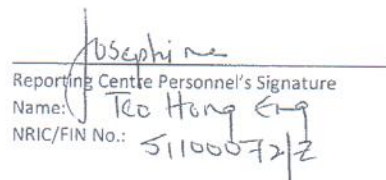 Josephine
Reporting Centre Personnel's Signature
Name: Teo Hong Eng
NRIC/FIN No.: S1100072/Z